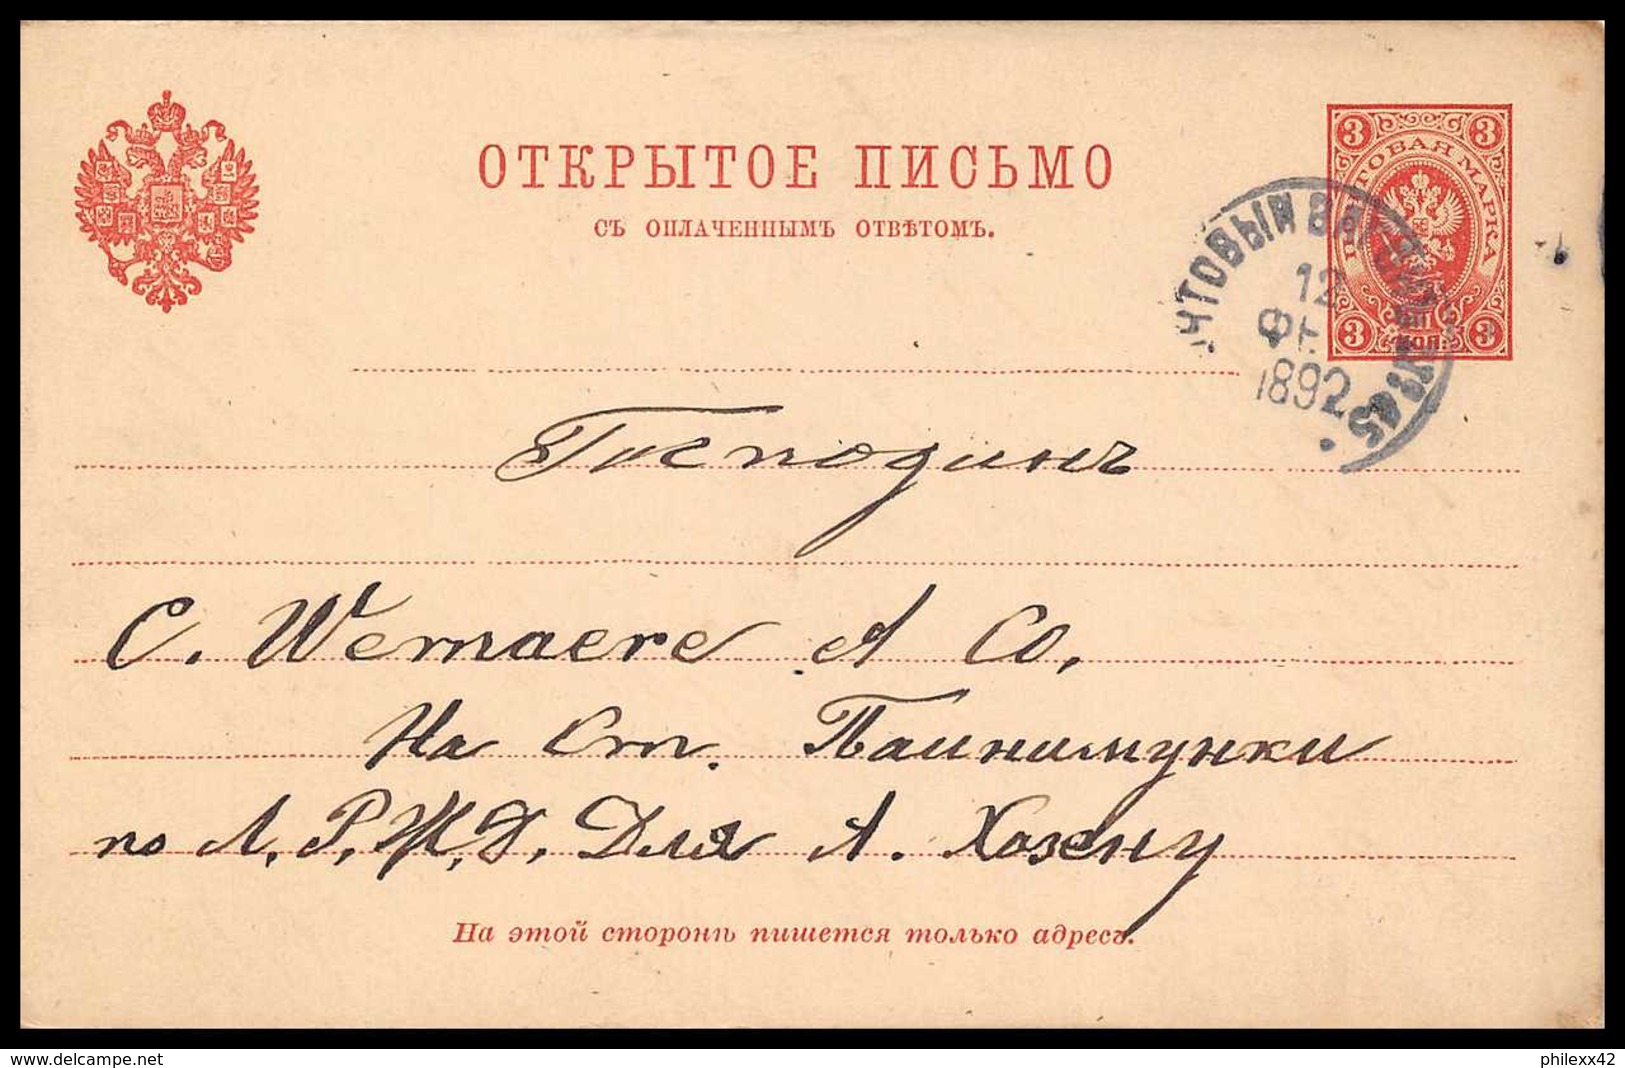 ОТКРЫТОЕ ПИСЬМО
СЪ ОПЛАЧЕННЫМЪ ОТВѢТОМЪ.
3 3
ПОЧТОВАЯ МАРКА
3 КОП. 3
ЧТОВЫЙ ВАГОНЪ
12
ФЕ
1892
Господинъ
C. Wernaere A Co,
На Ст. Паинимунки
по Л. Р. Ж. Д. Для А. Хозену
На этой сторонѣ пишется только адресъ.
www.delcampe.net
philexx42